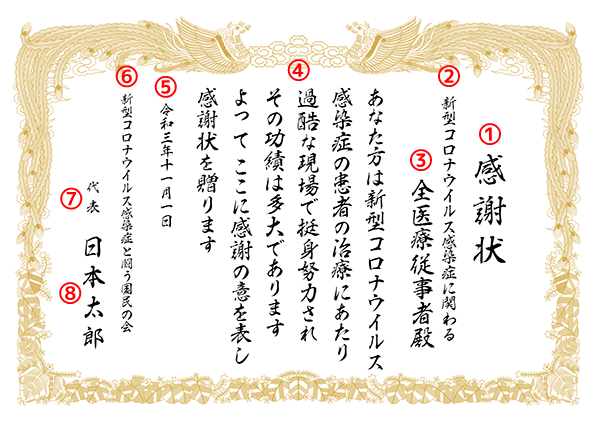 ① 感謝状
② 新型コロナウイルス感染症に関わる
③ 全医療従事者殿
④
あなた方は新型コロナウイルス
感染症の患者の治療にあたり
過酷な現場で挺身努力され
その功績は多大であります
よってここに感謝の意を表し
感謝状を贈ります
⑤ 令和三年十一月一日
⑥ 新型コロナウイルス感染症と闘う国民の会
⑦ 代表
⑧ 日本太郎